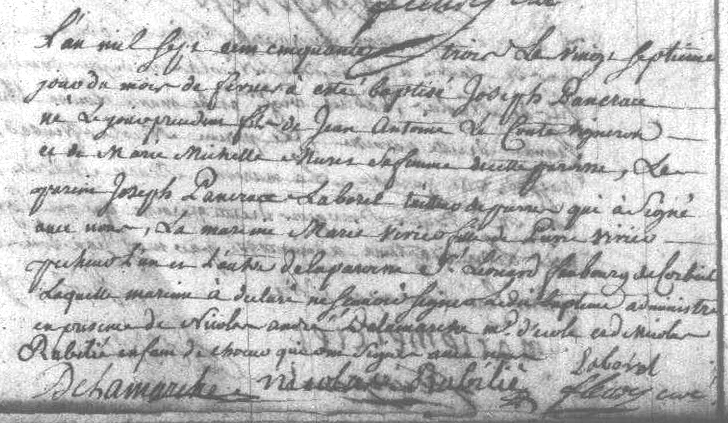 L'an mil sept cent cinquante trois Le vingt septieme
jour du mois de fevrier à esté baptisé Joseph Pancrace
né Le jour precedent fils de Jean Antoine Le Conte vigneron
et de Marie Michelle sa femme de cette paroisse, Le
parein Joseph Pancrace Laborel tailleur de pierre qui à Signé
avec nous, La mareine Marie fille de Pierre
pecheur l'un et l'autre de la paroisse St. Leonard faubourg de Corbeil
Laquelle mareine à declaré ne scavoir signer Ledit baptême administré
en presence de Nicolas andré Delamarche me. d'ecole et de Nicolas
Rubilié enfant de choeur qui ont signés avec nous
Laborel
Delamarche nicolas Rubilié curé